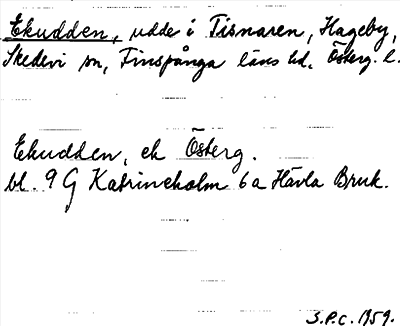 Ekudden, udde i Tisnaren, Hageby,
Skedevi sn, Finspånga läns hd, Österg. l.
Ekudden, ek Österg.
bl. 9 G Katrineholm 6a Hävla Bruk.
S.P.C. 1959.